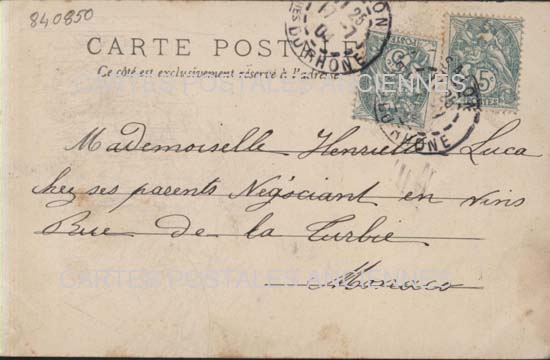 840850
CARTE POSTALE
Ce côté est exclusivement réservé à l'adresse
CARTES POSTALES ANCIENNES
Mademoiselle Henriette Luca
chez ses parents Négociant en vins
Rue de la Turbie
CARTES POSTALES ANCIENNES
Monaco
DU RHONE
DU RHONE
5c